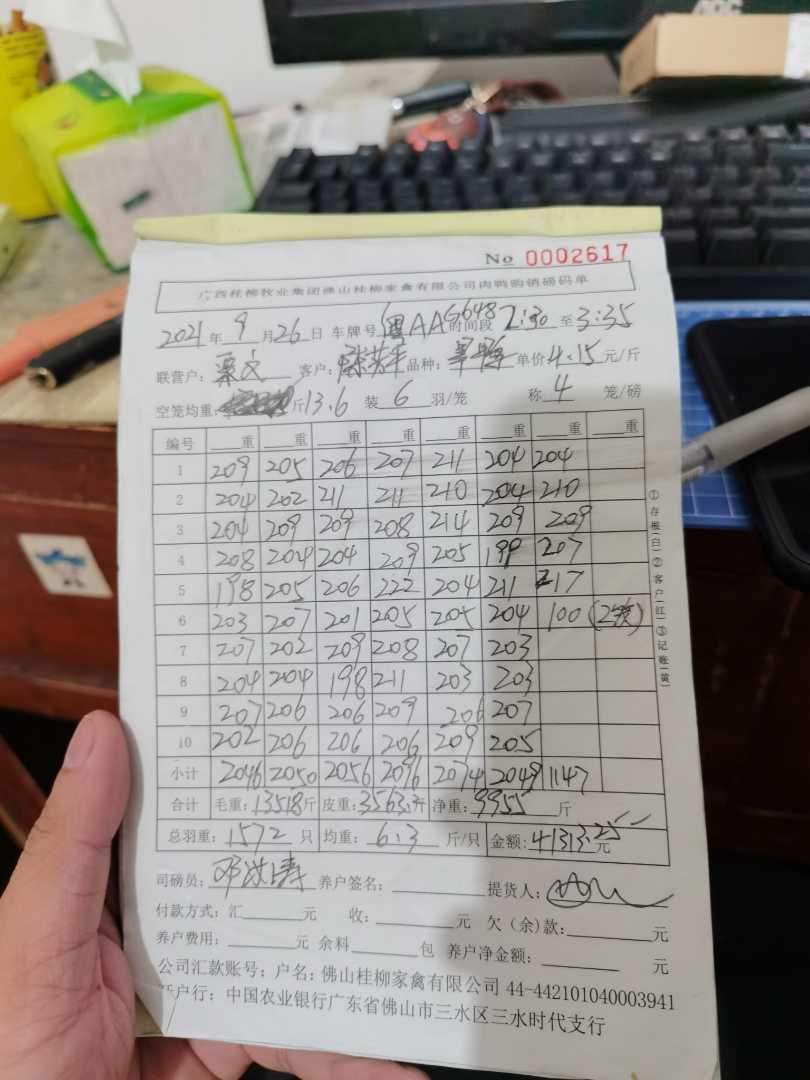 AOC
No 0002617
广西桂柳牧业集团佛山桂柳家禽有限公司肉鸭购销磅码单
2021年9月26日 车牌号 粤AAG648 时间段 2:30 至 3:35
联营户: 客户: 品种: 单价 4.15 元/斤
空笼均重: 斤 13.6 装 6 羽/笼 称 4 笼/磅
编号 重 重 重 重 重 重 重 重
1 209 205 206 207 211 204 204
2 204 202 211 211 210 204 210
3 204 209 209 208 214 209 209
4 208 204 204 209 205 199 207
5 198 205 206 222 204 211 217
6 203 207 201 205 205 204 100 (2笼)
7 207 202 209 208 207 203
8 204 204 198 211 203 203
9 207 206 206 209 206 207
10 202 206 206 206 209 205
小计 2046 2050 2056 2096 2074 2049 1147
合计 毛重: 13518 斤 皮重: 3563. 斤 净重: 9955 斤
总羽重: 1572 只 均重: 6.3 斤/只 金额: 41313.25 元
司磅员: 养户签名: 提货人:
付款方式: 汇 元 收: 元 欠(余)款: 元
养户费用: 元 余料 包 养户净金额: 元
公司汇款账号: 户名: 佛山桂柳家禽有限公司 44-442101040003941
开户行: 中国农业银行广东省佛山市三水区三水时代支行
①存根(白)②客户(红)③记账(黄)